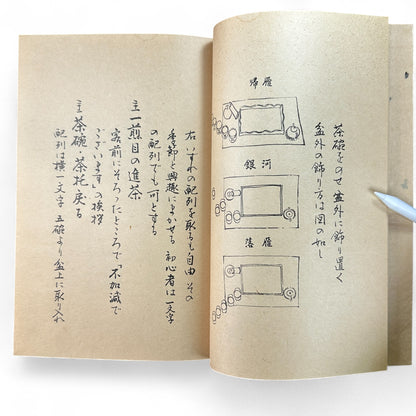 茶碗をのせ盆外に飾り置く
盆外の飾り方は図の如し
帰雁
銀河
落雁
右 いずれの配列を取るも自由 その
季節と興趣にまかせる 初心者は一文字
の配列でも可とする
主 一煎目の進茶
客前にそろったところで「不加減で
ございます」の挨拶
主 茶碗 茶托 戻る
配列は横一文字 五碗より盆上に取り入れ